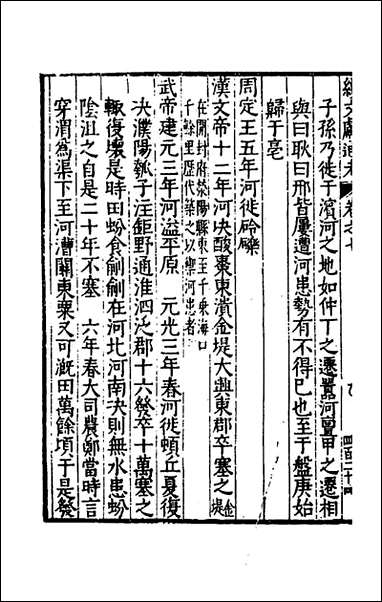 續文獻通考 卷之七
子孫乃徙于濱河之地如仲丁之遷囂河亶甲之遷相
與曰耿曰邢皆屢遭河患勢有不得已也至于盤庚始
歸于亳
周定王五年河徙砱礫
漢文帝十二年河決酸棗東潰金堤大興東郡卒塞之 金堤
在開封府滎陽縣東至千乗海口
千餘里歷代築之以禦河患者
武帝建元三年河溢平原 元光三年春河徙頓丘夏復
決濮陽瓠子注鉅野通淮泗泛郡十六發卒十萬塞之
輙復壞是時田蚡食鄃鄃在河北河南決則無水患蚡
陰沮之自是二十年不塞 六年春大司農鄭當時言
穿渭為渠下至河漕關東粟又可溉田萬餘頃于是發